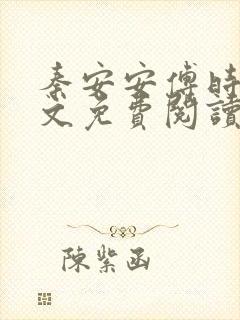 秦安安傅時
文免費閱讀
陳紫函